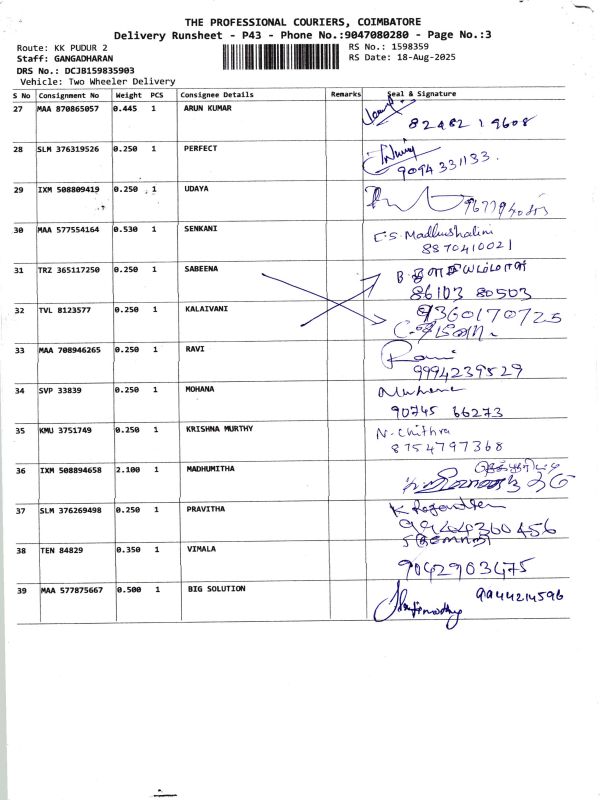 THE PROFESSIONAL COURIERS, COIMBATORE
Delivery Runsheet - P43 - Phone No.:9047080280 - Page No.:3
Route: KK PUDUR 2 RS No.: 1598359
Staff: GANGADHARAN RS Date: 18-Aug-2025
DRS No.: DCJB159835903
Vehicle: Two Wheeler Delivery
S No Consignment No Weight PCS Consignee Details Remarks Seal & Signature
27 MAA 870865057 0.445 1 ARUN KUMAR
82482 19608
28 SLM 376319526 0.250 1 PERFECT
9094331133.
29 IXM 508809419 0.250 1 UDAYA
30 MAA 577554164 0.530 1 SENKANI C.S. Madhushalini
8870410021
31 TRZ 365117250 0.250 1 SABEENA
86103 80503
32 TVL 8123577 0.250 1 KALAIVANI 9360170725
33 MAA 708946265 0.250 1 RAVI Ravi
9994239529
34 SVP 33839 0.250 1 MOHANA
90745 66273
35 KMU 3751749 0.250 1 KRISHNA MURTHY N. Chithra
8754797368
36 IXM 508894658 2.100 1 MADHUMITHA
37 SLM 376269498 0.250 1 PRAVITHA
9944360456
38 TEN 84829 0.350 1 VIMALA
9042903475
39 MAA 577875667 0.500 1 BIG SOLUTION 9944214596